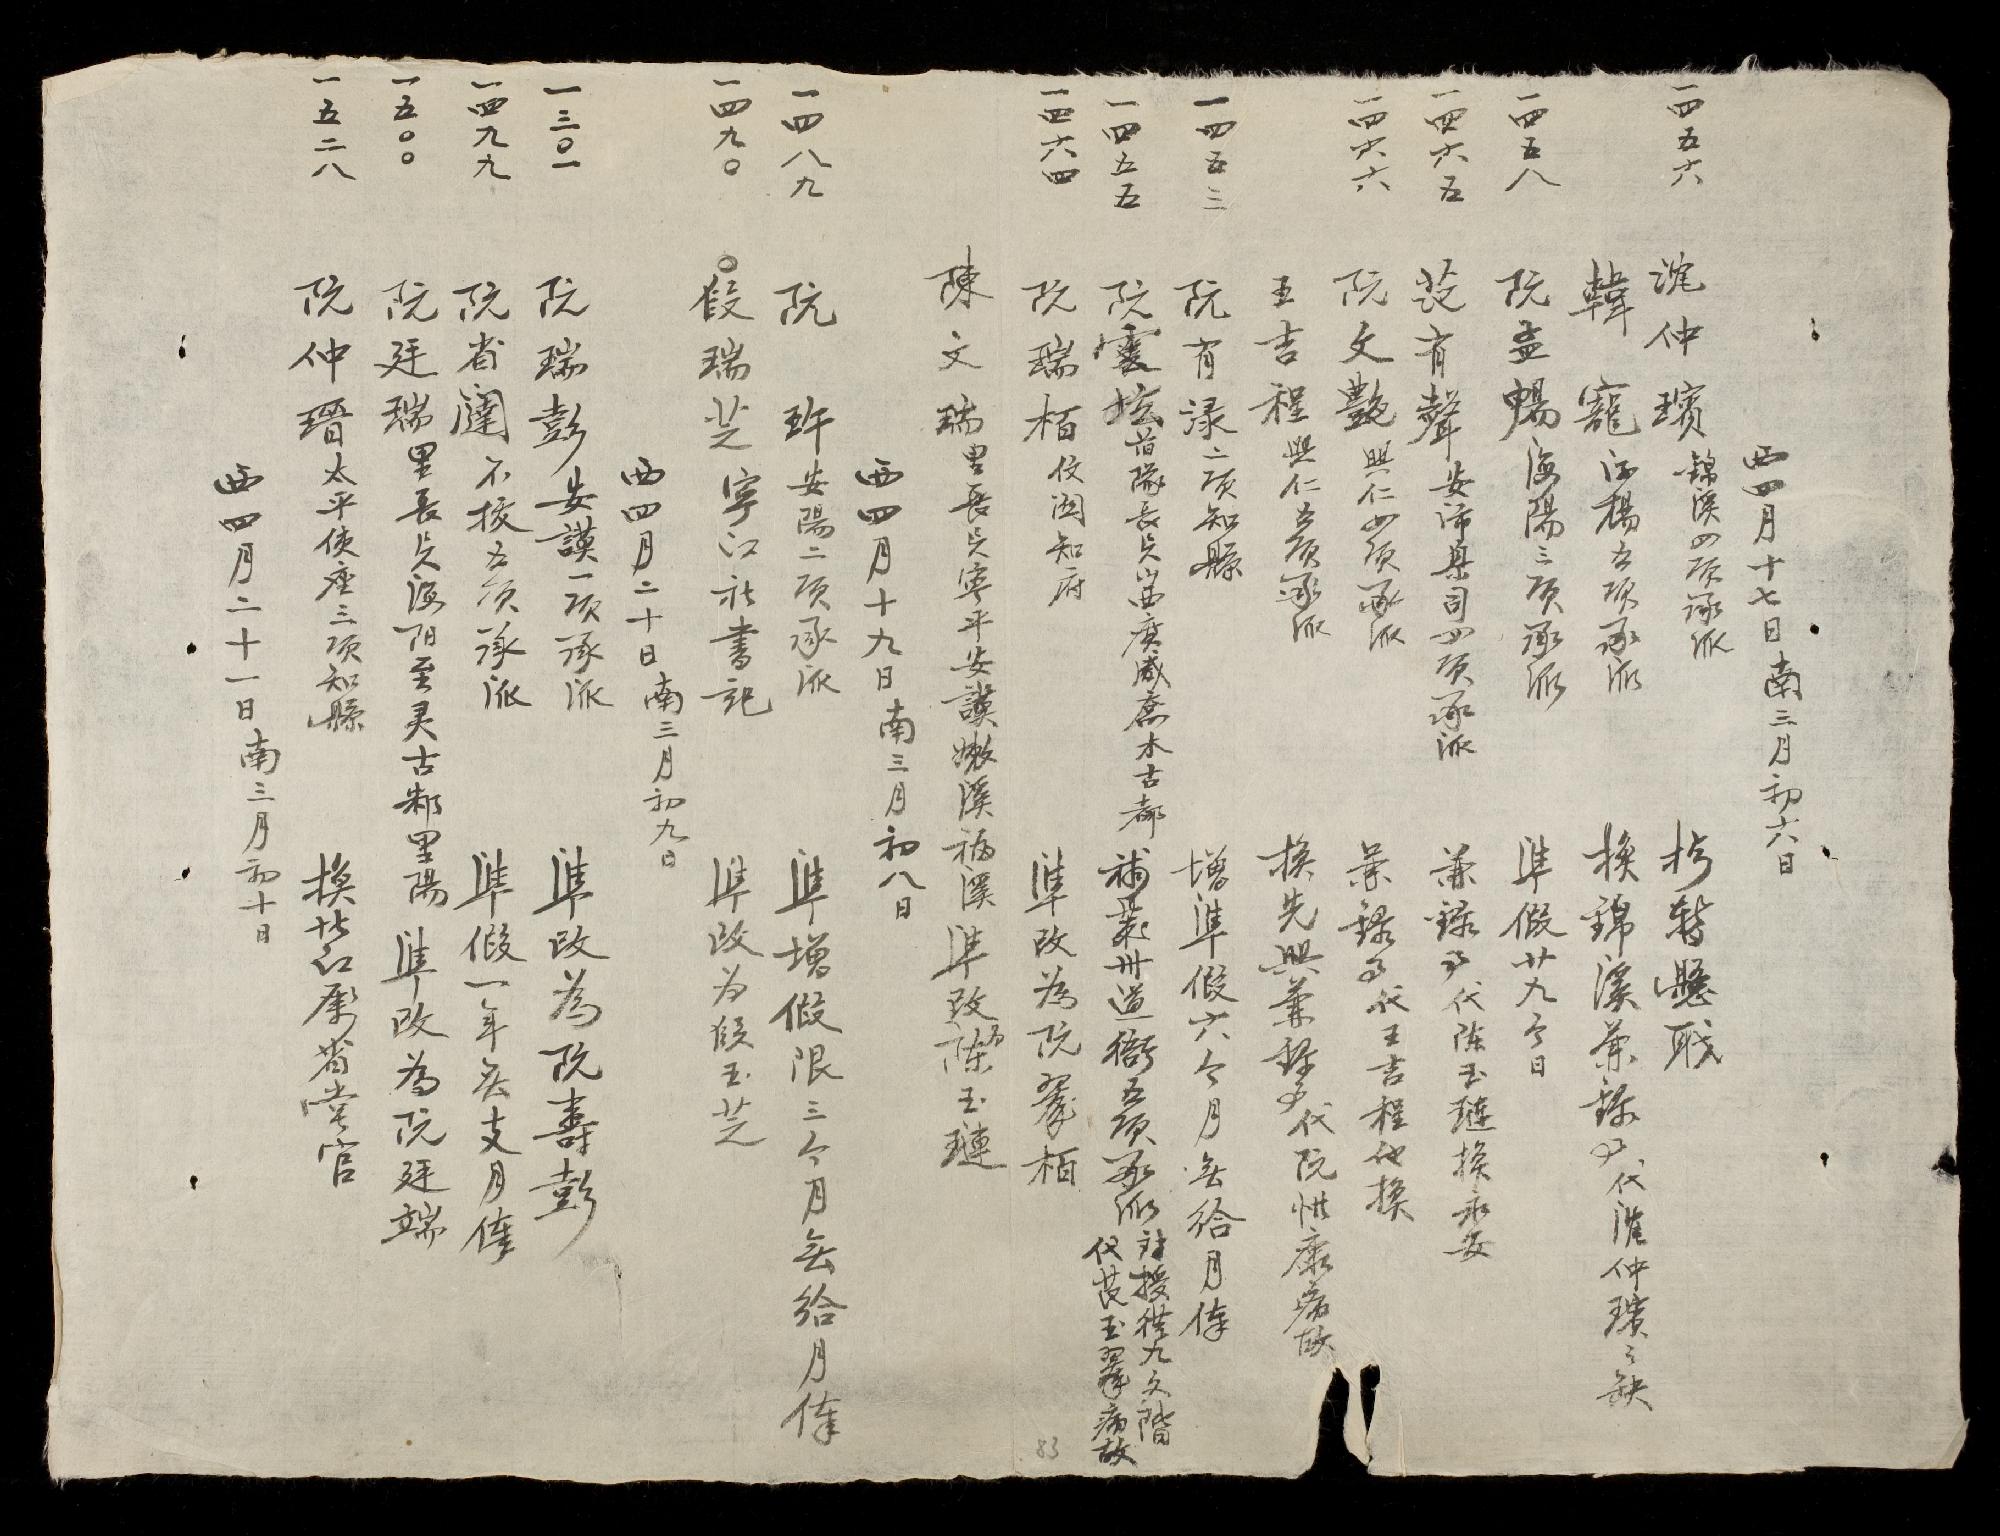 西四月十七日南三月初六日
一四五六 沈仲璸 錦溪四項承派 懸職
韓寵 五項承派 換錦溪兼錄事代沈仲璸之缺
一四五八 阮孟暢 海陽三項承派 準假廿九今日
一四六五 范有聲 安沛臬司四項承派 兼錄事代陳玉璉換永安
一四六六 阮文艷 興仁四項承派 兼錄事代王吉程他換
王吉程 興仁五項承派 換先興兼錄事代阮惟康病故
一四五三 阮有渌 二項知縣 增準假六今月無給月俸
一四五五 阮雲 首隊長兵山西廣威 木古都 補 道衙五項承派 授從九文階 代范玉翠病故
一四六四 阮瑞栢 知府 準改為阮翠栢
陳文瑞 里長兵寧平安謨嫩溪福溪 準改為陳玉璉
西四月十九日南三月初八日
一四八九 阮玝 安陽二項承派 準增假限三今月無給月俸
一四九〇 〇段瑞芝 寧江社書記 準改为段玉芝
西四月二十日南三月初九日
一三〇一 阮瑞彭 安謨一項承派 準改為阮壽彭
一四九九 阮省闥 不拔五項承派 準假一年無支月俸
一五〇〇 阮廷瑞 里長兵海阳至灵古郴里陽 準改為阮廷端
一五二八 阮仲瑨 太平使座三項知縣 換 省堂官
西四月二十一日南三月初十日
83